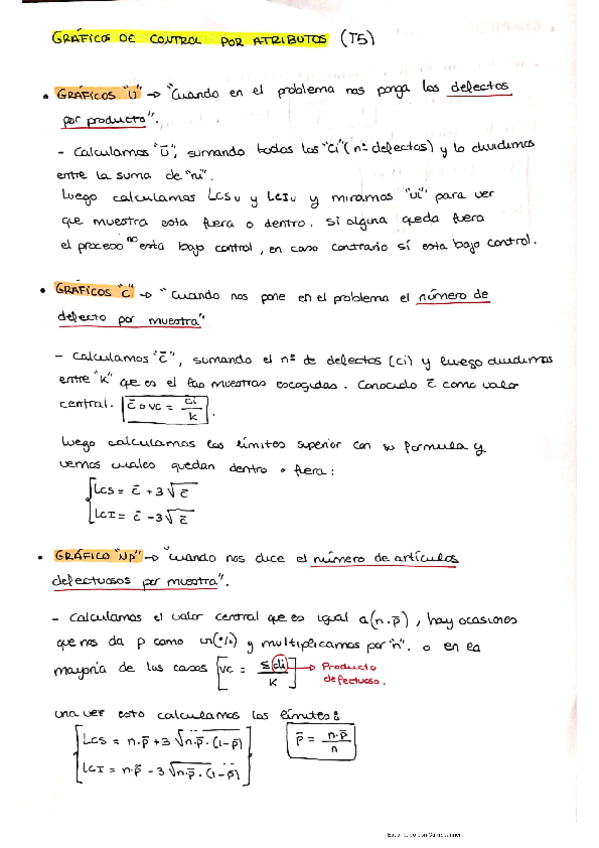 GRÁFICOS DE CONTROL POR ATRIBUTOS (T5)
• GRÁFICOS "U" → "Cuando en el problema nos ponga los defectos
por producto".
- Calculamos "Ū", sumando todos los "ci" (nº defectos) y lo dividimos
entre la suma de "ni".
Luego calculamos LCSu y LCIu y miramos "ui" para ver
que muestra esta fuera o dentro. Si alguna queda fuera
el proceso no esta bajo control, en caso contrario sí esta bajo control.
• GRÁFICOS "C" → "Cuando nos pone en el problema el número de
defecto por muestra"
- Calculamos "c̄", sumando el nº de defectos (ci) y luego dividimos
entre "K" que es el de muestras escogidas. Conocido c̄ como valor
central. c̄ o vc = ci / K.
Luego calculamos los límites superior con su formula y
vemos cuales quedan dentro o fuera:
LCS = c̄ + 3√c̄
LCI = c̄ - 3√c̄
• GRÁFICO "NP" → "cuando nos dice el número de artículos
defectuosos por muestra".
- Calculamos el valor central que es igual a (n.p̄), hay ocasiones
que nos da p como un (%) y multiplicamos por "n". o en la
mayoría de los casos [vc = Σdi / K] → Producto
defectuoso.
una vez esto calculamos los límites:
LCS = n.p̄ + 3√n.p̄.(1-p̄)
LCI = n.p̄ - 3√n.p̄.(1-p̄)
p̄ = n.p̄ / n